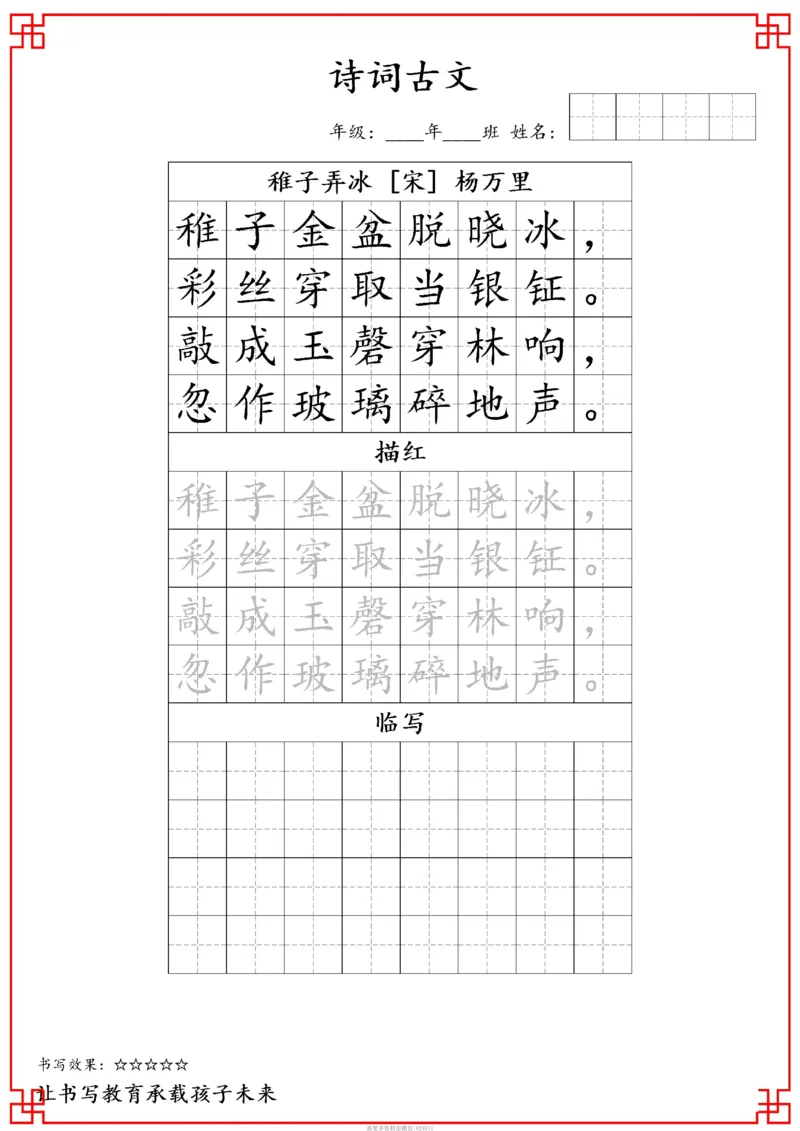 诗词古文
年级：____年____班 姓名：
稚子弄冰 [宋] 杨万里
稚子金盆脱晓冰，
彩丝穿取当银钲。
敲成玉磬穿林响，
忽作玻璃碎地声。
描红
稚子金盆脱晓冰，
彩丝穿取当银钲。
敲成玉磬穿林响，
忽作玻璃碎地声。
临写
书写效果：☆☆☆☆☆
让书写教育承载孩子未来